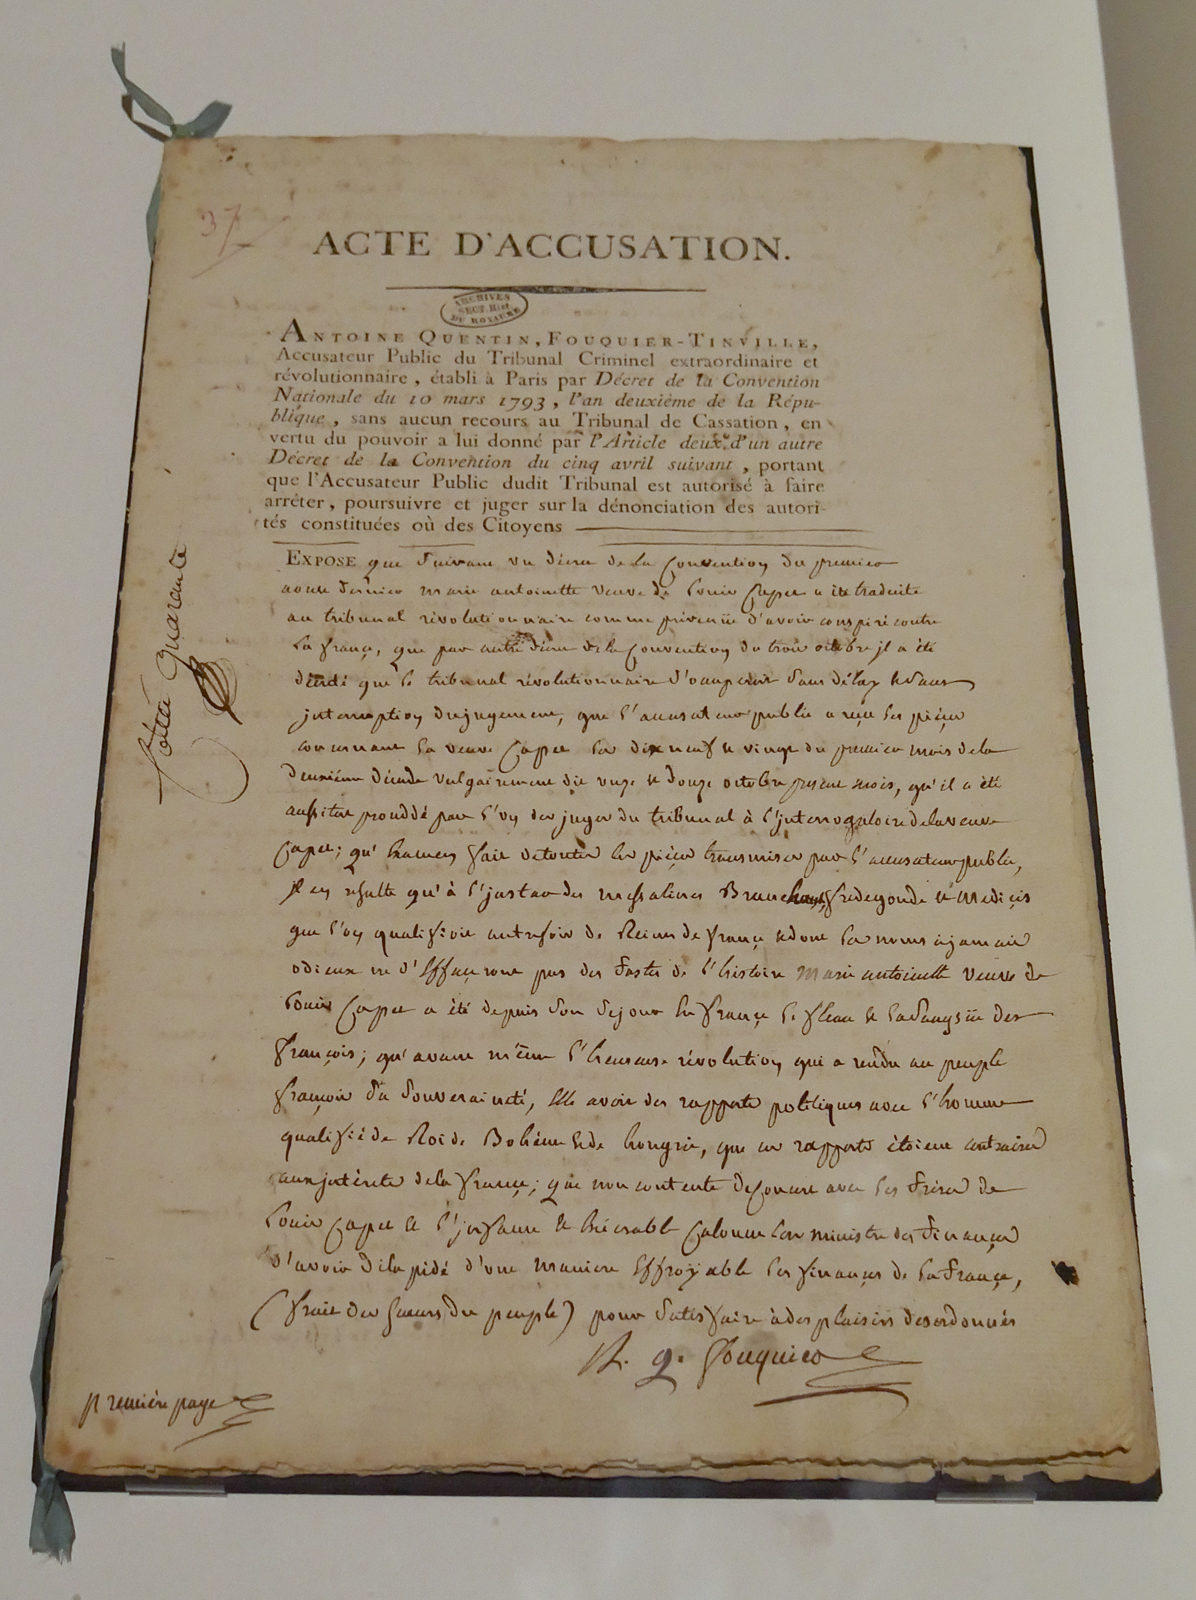 37
ACTE D'ACCUSATION.
ARCHIVES
SECT. Hist
DU ROYAUME
ANTOINE QUENTIN, FOUQUIER-TINVILLE,
Accusateur Public du Tribunal Criminel extraordinaire et
révolutionnaire, établi à Paris par Décret de la Convention
Nationale du 10 mars 1793, l'an deuxième de la Répu-
blique, sans aucun recours au Tribunal de Cassation, en
vertu du pouvoir a lui donné par l'Article deux d'un autre
Décret de la Convention du cinq avril suivant, portant
que l'Accusateur Public dudit Tribunal est autorisé à faire
arrêter, poursuivre et juger sur la dénonciation des autori-
tés constituées où des Citoyens
EXPOSE que Suivant un décret de la Convention du premier
aoust dernier marie antoinette veuve de Louis Capet a été traduite
au tribunal révolutionnaire comme prévenüe d'avoir conspiré contre
la france, que par autre décret de la Convention du trois octobre jl a été
décrété que le tribunal révolutionnaire s'occuperoit Sans délay & Sans
jnterruption du jugement, que l'accusateur public a reçu les pièces
concernant la veuve Capet les dix neuf & vingt du premier mois de la
deuxième décade vulgairement dit onze & douze octobre present mois, qu'il a été
aussitot procédé par l'un des juges du tribunal à l'jnterrogatoire de la veuve
Capet; qu'Examen fait de toutes les pièces transmises par l'accusateur public,
jl en résulte qu'à l'jnstar des messalines Brunehaut, fredegonde & Medicis
que l'on qualifioit autrefois de Reines de france & dont les noms à jamais
odieux ne s'Effaceront pas des fastes de l'histoire Marie antoinette veuve de
Louis Capet a été depuis Son Séjour En france le fléau & la Sangsüe des
françois; qu'avant même l'heureuse révolution qui a rendu au peuple
françois Sa Souveraineté, Elle avoit des rapports politiques avec l'homme
qualifié de Roi de Bohême & de hongrie, que ces rapports étoient contraires
aux jntérêts de la france; que non contente de Concert avec les frères de
Louis Capet & l'jnfame & Exécrable Calonne lors ministre des Finances
d'avoir dilapidé d'une manière Effroyable les finances de la france,
(fruit des Sueurs du peuple) pour Satisfaire à des plaisirs desordonnés
A. q. fouquier
première page
Cotté Quarante